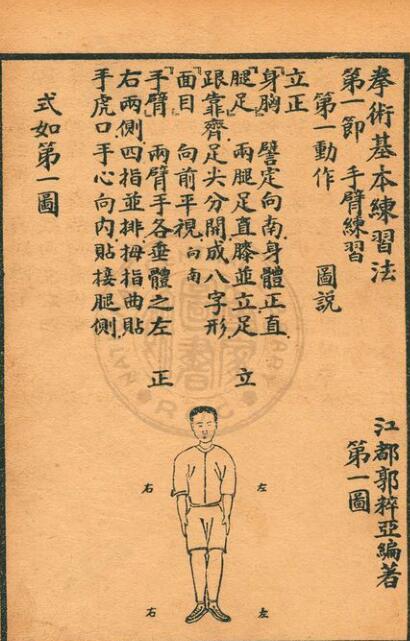 拳術基本練習法
江都郭粹亞編著
第一節 手臂練習
第一圖
第一動作 圖説
立正
『身胸』 譬定向南身體正直
『腿足』 兩腿足直膝並立足
跟靠齊足尖分開成八字形
『面目』 向前平視向南
『手臂』 兩臂手各垂體之左
右兩側四指並排拇指曲貼
手虎口手心向內貼接腿側
式如第一圖
立
正
右
左
右
左